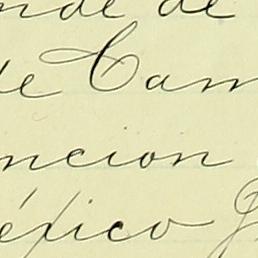 nde de
de Cam
ncion
éxico